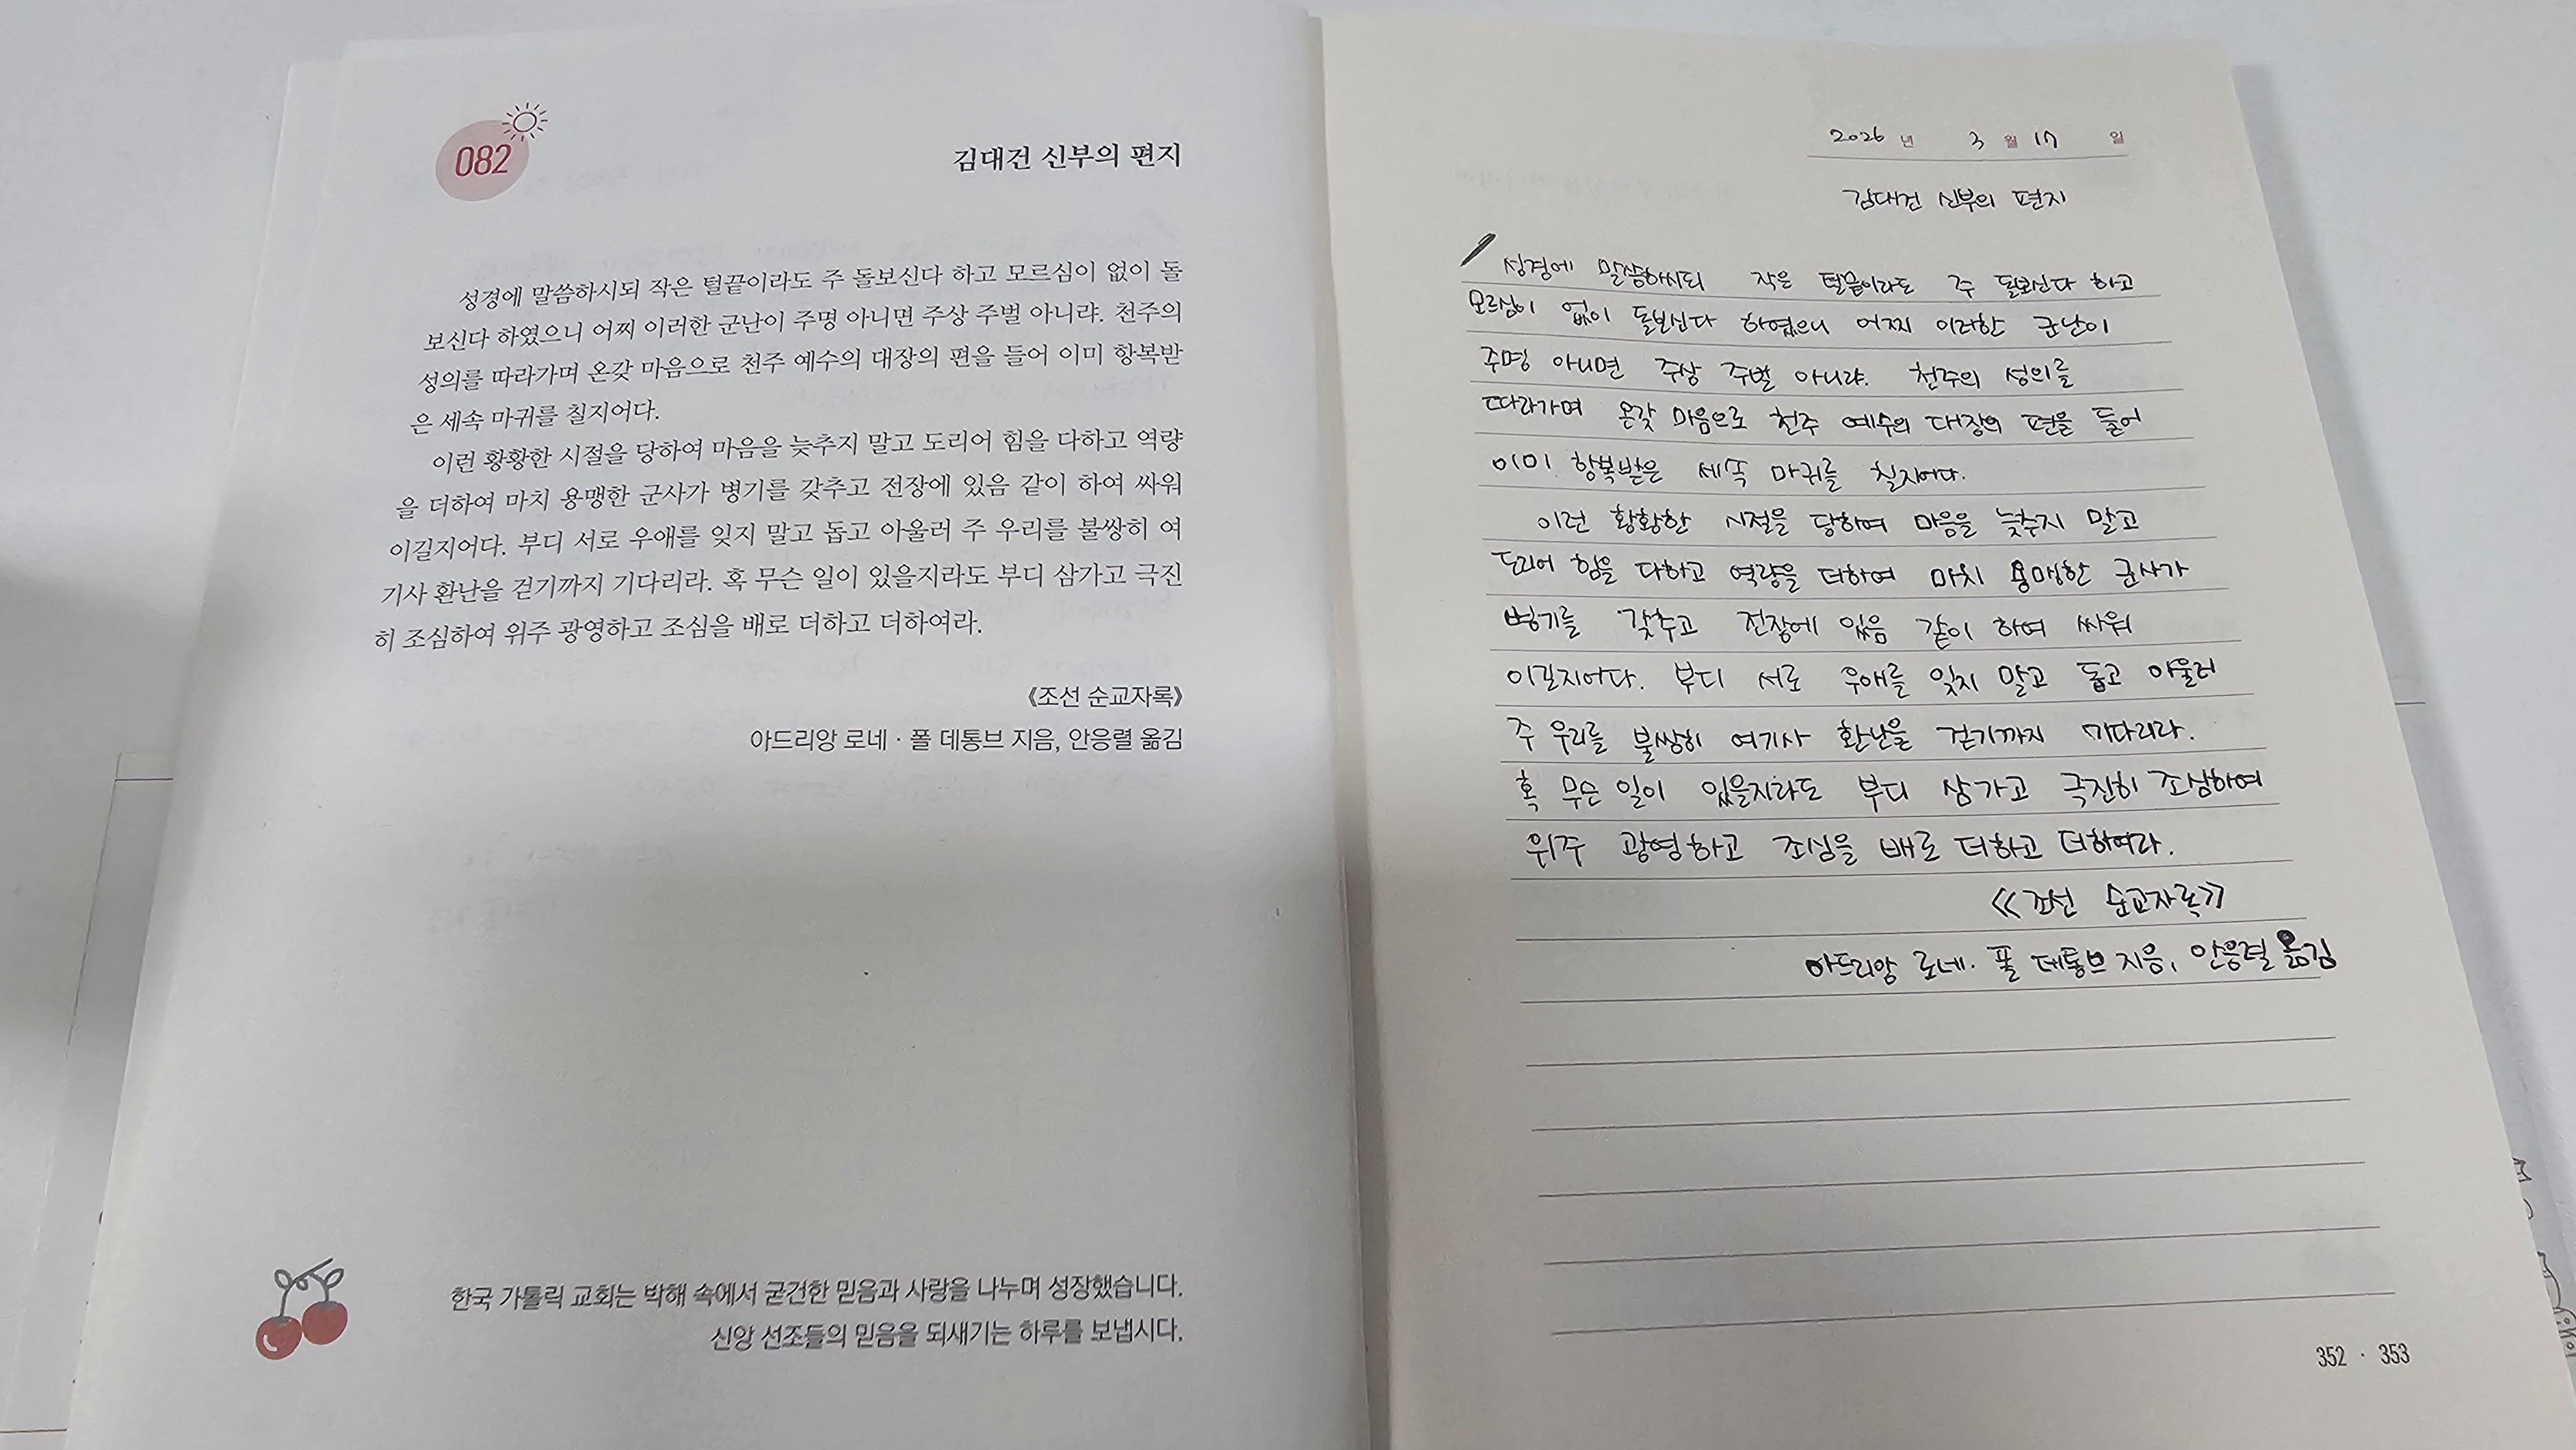 082
김대건 신부의 편지
성경에 말씀하시되 작은 털끝이라도 주 돌보신다 하고 모르심이 없이 돌
보신다 하였으니 어찌 이러한 군난이 주명 아니면 주상 주벌 아니랴. 천주의
성의를 따라가며 온갖 마음으로 천주 예수의 대장의 편을 들어 이미 항복받
은 세속 마귀를 칠지어다.
이런 황황한 시절을 당하여 마음을 늦추지 말고 도리어 힘을 다하고 역량
을 더하여 마치 용맹한 군사가 병기를 갖추고 전장에 있음 같이 하여 싸워
이길지어다. 부디 서로 우애를 잊지 말고 돕고 아울러 주 우리를 불쌍히 여
기사 환난을 걷기까지 기다리라. 혹 무슨 일이 있을지라도 부디 삼가고 극진
히 조심하여 위주 광영하고 조심을 배로 더하고 더하여라.
《조선 순교자록》
아드리앙 로네 · 폴 데통브 지음, 안응렬 옮김
한국 가톨릭 교회는 박해 속에서 굳건한 믿음과 사랑을 나누며 성장했습니다.
신앙 선조들의 믿음을 되새기는 하루를 보냅시다.
2026 년 3 월 17 일
김대건 신부의 편지
성경에 말씀하시되 작은 털끝이라도 주 돌보신다 하고
모르심이 없이 돌보신다 하였으니 어찌 이러한 군난이
주명 아니면 주상 주벌 아니랴. 천주의 성의를
따라가며 온갖 마음으로 천주 예수의 대장의 편을 들어
이미 항복받은 세속 마귀를 칠지어다.
이런 황황한 시절을 당하여 마음을 늦추지 말고
도리어 힘을 다하고 역량을 더하여 마치 용맹한 군사가
병기를 갖추고 전장에 있음 같이 하여 싸워
이길지어다. 부디 서로 우애를 잊지 말고 돕고 아울러
주 우리를 불쌍히 여기사 환난을 걷기까지 기다리라.
혹 무슨 일이 있을지라도 부디 삼가고 극진히 조심하여
위주 광영하고 조심을 배로 더하고 더하여라.
《조선 순교자록》
아드리앙 로네 · 폴 데통브 지음, 안응렬 옮김
352 · 353